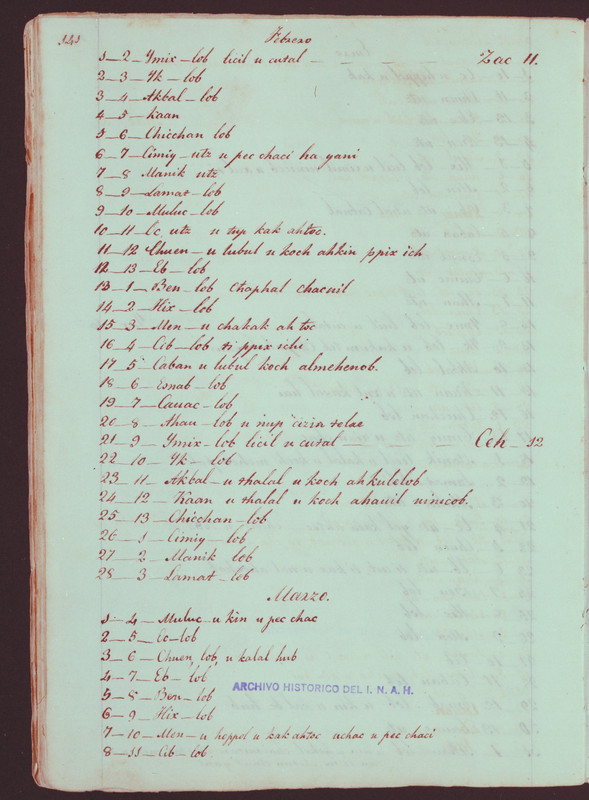 141
Febrero
1_2_Ymix_lob licil u cutal _ _ _ Zac 11.
2_3_Yk_lob
3_4_Akbal_lob
4_5_Kaan
5_6_Chicchan lob
6_7_Cimiy_utz u pec chaci ha yani
7_8 Manik utz
8_9_Lamat_lob
9_10_Muluc_lob
10_11_Oc, utz u tup kak ahtoc.
11_12 Chuen_u lubul u koch ahkin ppix ich
12_13_Eb_lob
13_1_Ben_lob chaphal chacuil
14_2_Hix_lob
15_3_Men_u chakak ah toc
16_4_Cib_lob ti ppix ichi
17_5_Caban u lubul koch almehenob.
18_6_Esnab_lob
19_7_Cauac_lob
20_8_Ahau_lob u mup cizin telae
21_9_Ymix_lob licil u cutal _ Ceh_12
22_10_Yk_lob
23_11_Akbal_u thalal u koch ahkulelob
24_12_Kaan u thalal u koch ahauil uinicob.
25_13_Chicchan_lob
26_1_Cimiy_lob
27_2_Manik lob
28_3_Lamat_lob
Marzo.
1_4_Muluc u kin u pec chac
2_5_Oc_lob
3_6_Chuen, lob, u kalal hub
4_7_Eb_lob
5_8_Ben_lob
6_9_Hix_lob
7_10_Men_u heppel u kak ahtoc uchac u pec chaci
8_11_Cib_lob
ARCHIVO HISTORICO DEL I. N. A. H.